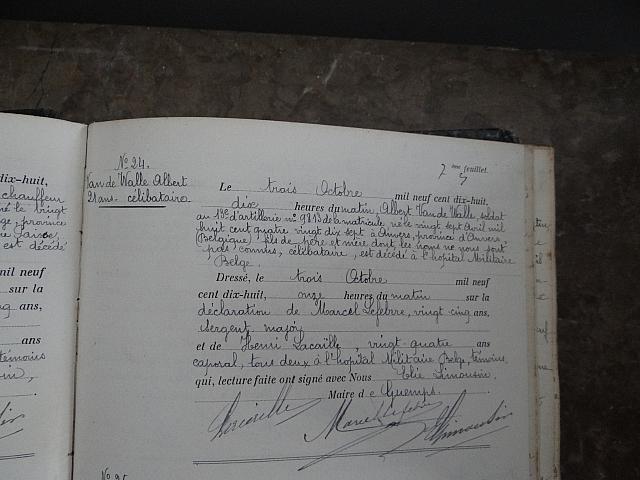 dix-huit,
chauffeur
né le vingt
province
est décédé
mil neuf
sur la
ans,
ans
témoins
No 24.
Van de Walle Albert
21 ans. célibataire
7 ème feuillet.
Le trois Octobre mil neuf cent dix-huit,
dix heures du matin, Albert Van de Walle, soldat
au 13e d'artillerie no 9813 de la matricule né le vingt sept avril mil
huit cent quatre vingt dix sept à Anvers, province d'Anvers
(Belgique) fils de père et mère dont les noms ne nous sont
pas connus, célibataire, est décédé à l'hôpital Militaire
Belge
Dressé, le trois Octobre mil neuf
cent dix-huit, onze heures du matin sur la
déclaration de Marcel Lefebvre, vingt cinq ans,
sergent major
et de Henri Lacaille, vingt quatre ans
caporal, tous deux à l'hôpital Militaire Belge, témoins,
qui, lecture faite ont signé avec Nous Elie Limousin,
Maire de Guemps.
Lacaille Marcel Lefebvre Limousin
No 25